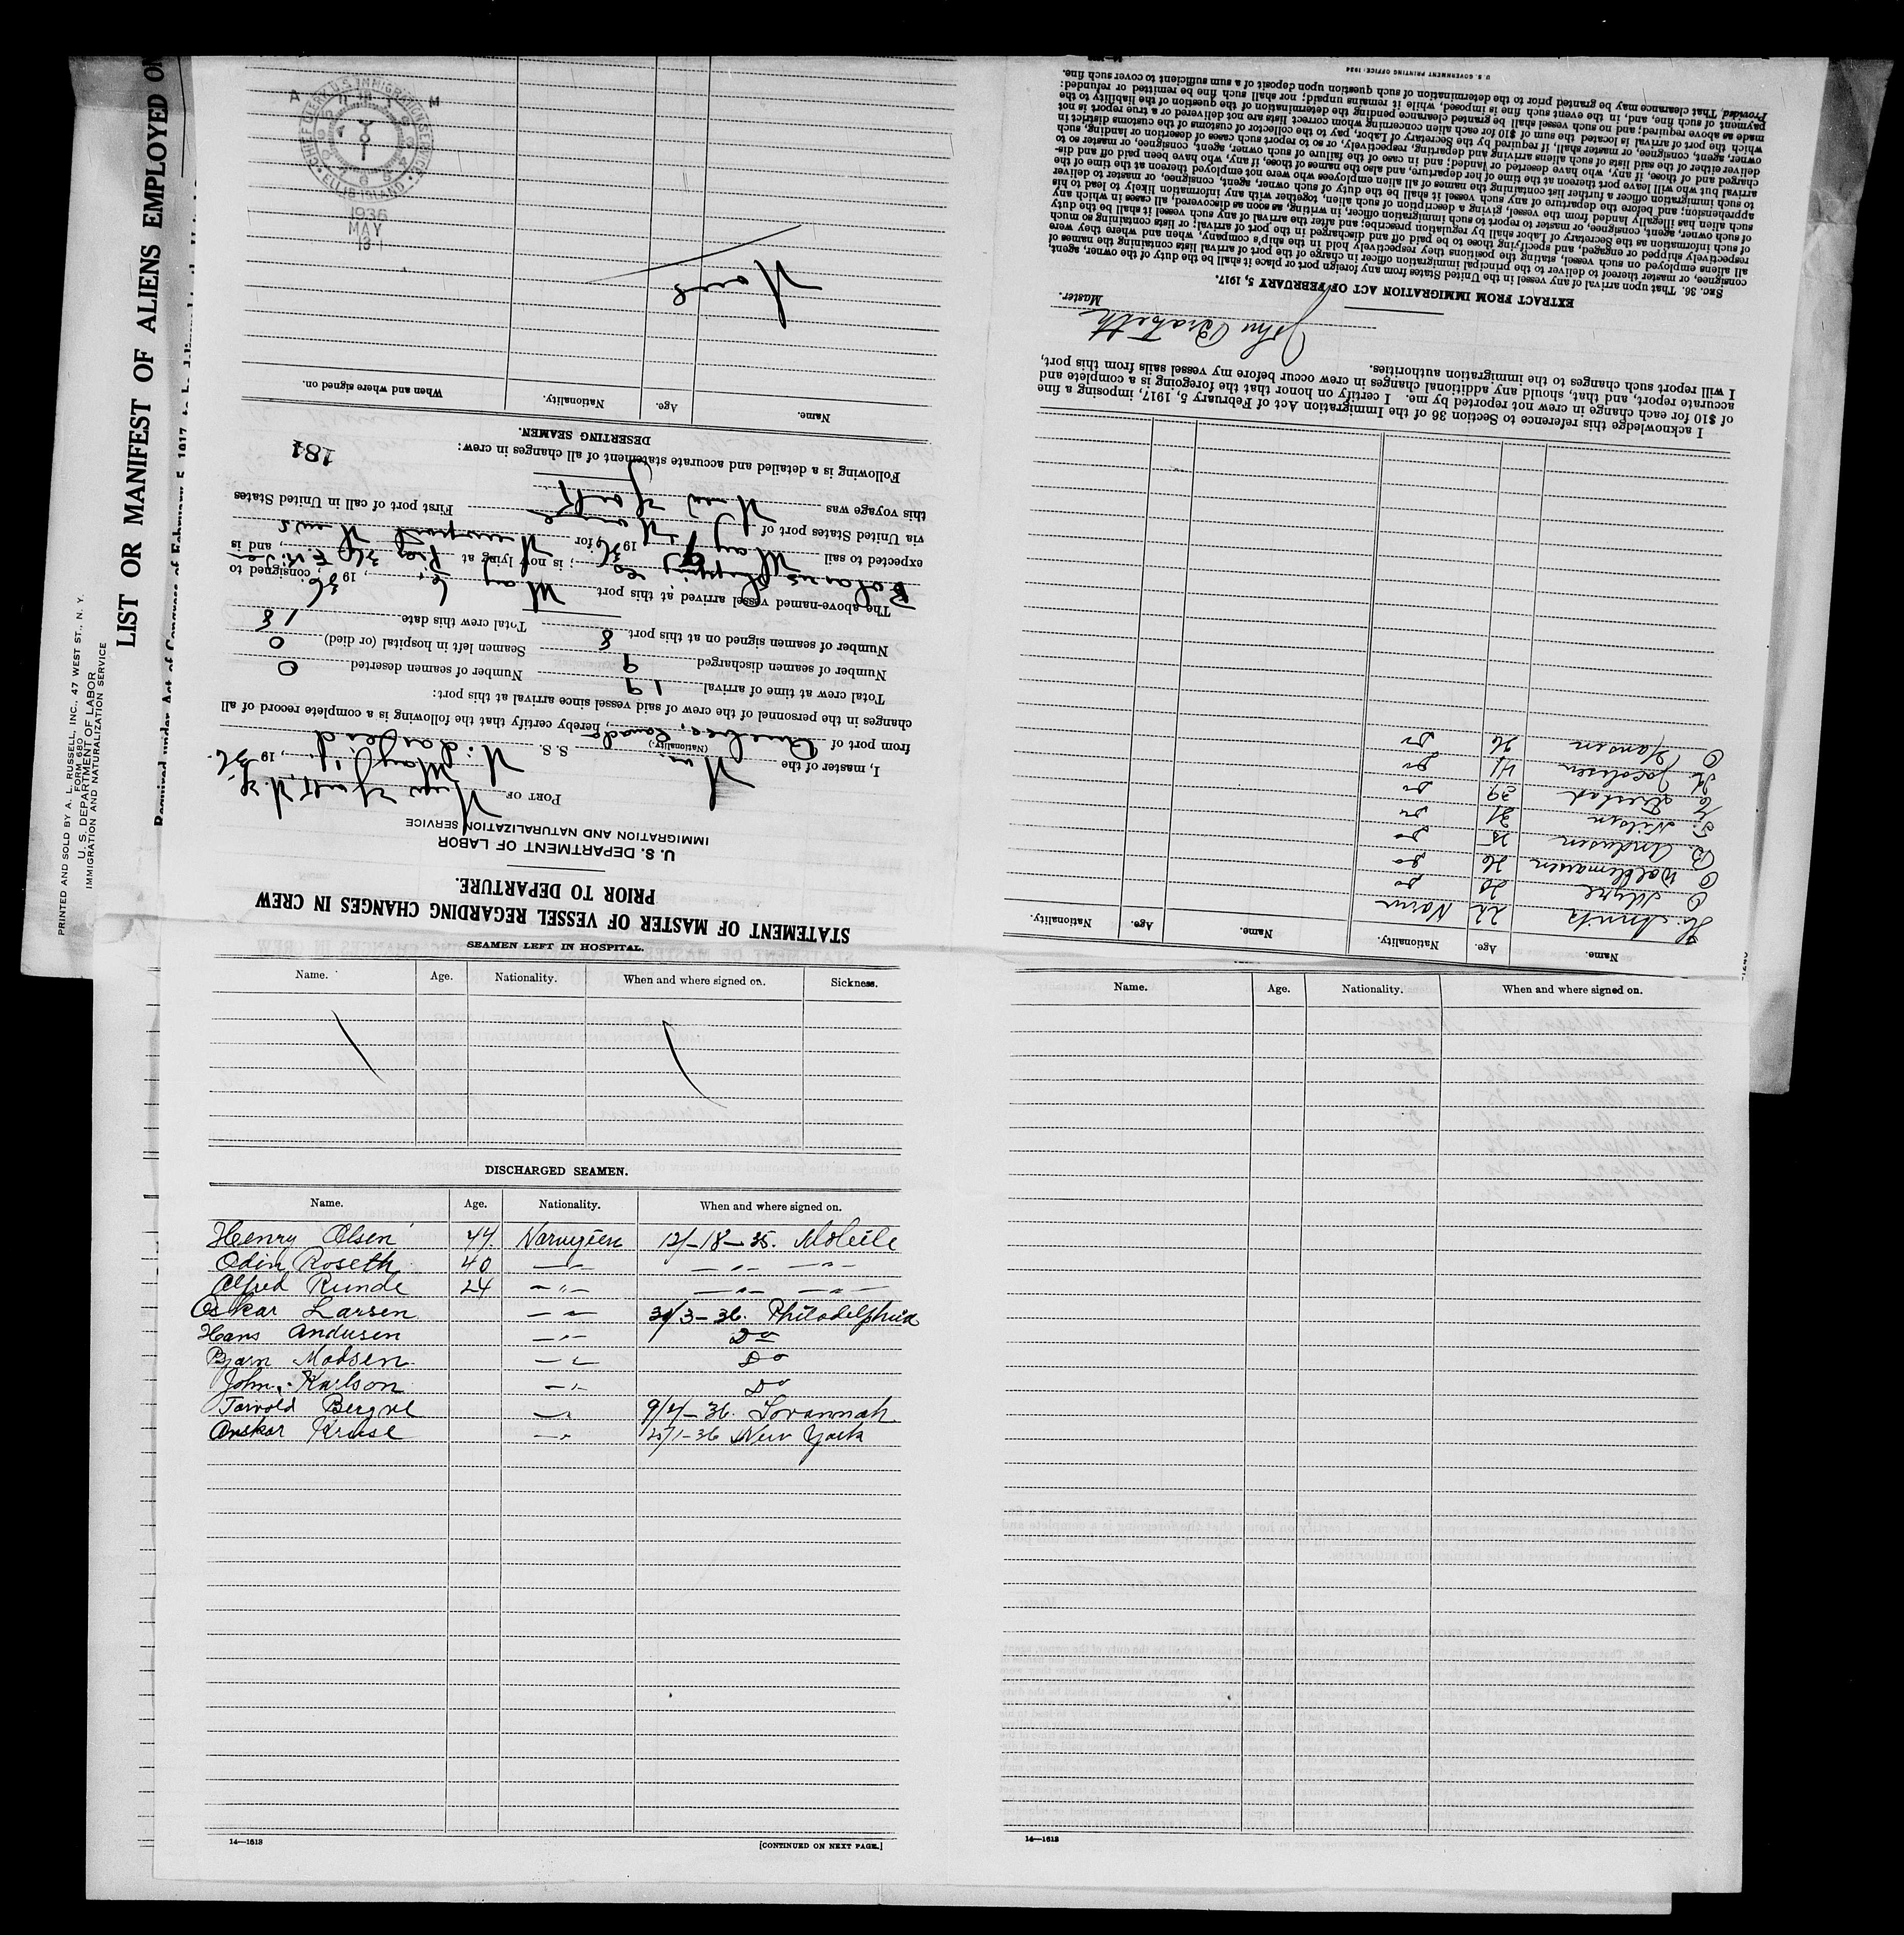 PRINTED AND SOLD BY A. L. RUSSELL, INC., 47 WEST ST., N. Y.
FORM 680
U. S. DEPARTMENT OF LABOR
IMMIGRATION AND NATURALIZATION SERVICE
LIST OR MANIFEST OF ALIENS EMPLOYED ON
Required under Act of Congress of February 5, 1917, to be delivered
STATEMENT OF MASTER OF VESSEL REGARDING CHANGES IN CREW
PRIOR TO DEPARTURE.
U. S. DEPARTMENT OF LABOR
IMMIGRATION AND NATURALIZATION SERVICE
PORT OF New York, N. Y.
May 19 36.
I, master of the (Nationality.) S. S.
from port of Quebec, Canada, hereby certify that the following is a complete record of all
changes in the personnel of the crew of said vessel since arrival at this port:
Total crew at time of arrival 19 Number of seamen deserted 0
Number of seamen discharged 9 Seamen left in hospital (or died) 0
Number of seamen signed on at this port 8 Total crew this date 18
The above-named vessel arrived at this port May 6, 1936, consigned to
Shipping Co; is now lying at, and is
expected to sail May 1936 for Newport News
via United States port of First port of call in United States
this voyage was New York
Following is a detailed and accurate statement of all changes in crew: 181
DESERTING SEAMEN.
Name. Age. Nationality. When and where signed on.
None
1936
MAY
13
CHIEF CLERK U.S. IMMIGRATION SERVICE
ELLIS ISLAND
A M
Name. Age. Nationality. Name. Age. Nationality.
22 Norw
20 Do
O Waldemarsen 26 Do
B. Andersen 25 Do
T. Nilsen 31 Do
39 Do
Jacobsen 41 Do
O Hansen 26 Do
I acknowledge this reference to Section 36 of the Immigration Act of February 5, 1917, imposing a fine
of $10 for each change in crew not reported by me. I certify on honor that the foregoing is a complete and
accurate report, and that, should any additional changes in crew occur before my vessel sails from this port,
I will report such changes to the immigration authorities.
John
Master.
EXTRACT FROM IMMIGRATION ACT OF FEBRUARY 5, 1917.
SEC. 36. That upon arrival of any vessel in the United States from any foreign port or place it shall be the duty of the owner, agent,
consignee, or master thereof to deliver to the principal immigration officer in charge of the port of arrival lists containing the names of
all aliens employed on such vessel, stating the positions they respectively hold in the ship's company, when and where they were
respectively shipped or engaged, and specifying those to be paid off and discharged in the port of arrival; or lists containing so much
of such information as the Secretary of Labor shall by regulation prescribe; and after the arrival of any such vessel it shall be the duty
of such owner, agent, consignee, or master to report to such immigration officer, in writing, as soon as discovered, all cases in which any
such alien has illegally landed from the vessel, giving a description of such alien, together with any information likely to lead to his
apprehension; and before the departure of any such vessel it shall be the duty of such owner, agent, consignee, or master to deliver
to such immigration officer a further list containing the names of all alien employees who were not employed thereon at the time of the
arrival but who will leave port thereon at the time of her departure, and also the names of those, if any, who have been paid off and dis-
charged and of those, if any, who have deserted or landed; and in case of the failure of such owner, agent, consignee, or master so to
deliver either of the said lists of such aliens arriving and departing, respectively, or so to report such cases of desertion or landing, such
owner, agent, consignee, or master shall, if required by the Secretary of Labor, pay to the collector of customs of the customs district in
which the port of arrival is located the sum of $10 for each alien concerning whom correct lists are not delivered or a true report is not
made as above required; and no such vessel shall be granted clearance pending the determination of the question of the liability to the
payment of such fine, and, in the event such fine is imposed, while it remains unpaid; nor shall such fine be remitted or refunded:
Provided, That clearance may be granted prior to the determination of such question upon deposit of a sum sufficient to cover such fine.
U. S. GOVERNMENT PRINTING OFFICE: 1934
SEAMEN LEFT IN HOSPITAL.
Name. Age. Nationality. When and where signed on. Sickness.
DISCHARGED SEAMEN.
Name. Age. Nationality. When and where signed on.
Henry Olsen 44 Norwegien 12/-18-35. Mobile
Odin Roseth 40 —"— —"— —"—
Alfred Runde 24 —"— —"— —"—
Oskar Larsen —"— 30/3-36. Philadelphia
Hans Andersen —"— Do
Bjarn Madsen —"— Do
John. Karlson —"— Do
—"— 9/4-36. Savannah
Kruse —"— New York
14—1613
[CONTINUED ON NEXT PAGE.]
Name. Age. Nationality. When and where signed on.
14—1613